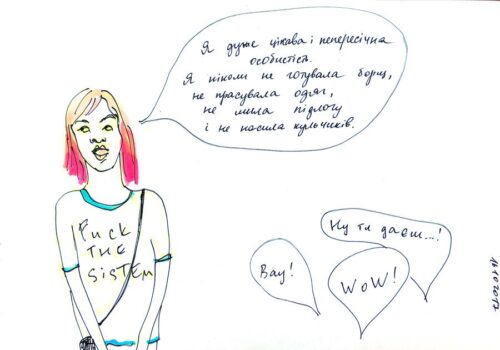 Я дуже цікава і непересічна
особистість.
Я ніколи не готувала борщ,
не прасувала одяг,
не мила підлогу
і не носила кульчиків.
Fuck
THE
SiSTEM
Ну ти даєш...!
Вау!
WoW!
16.10.2017